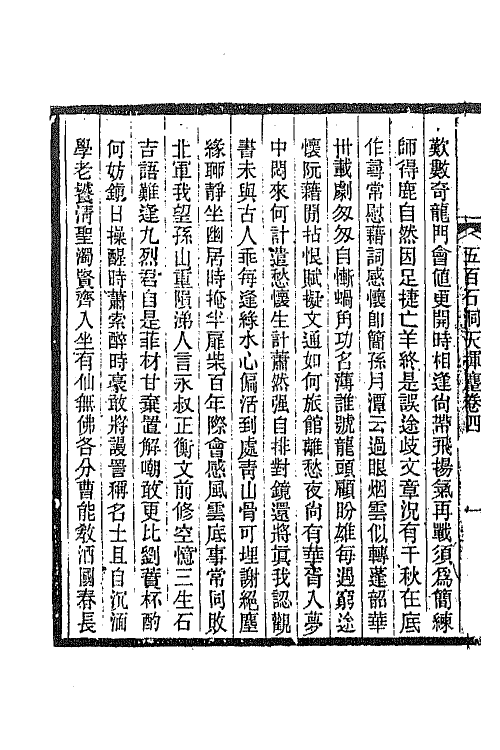 五百石洞天揮麈卷四
一
歎數奇龍門會値更開時相逢尙帶飛揚氣再戰須爲簡練
師得鹿自然因足捷亡羊終是誤途歧文章況有千秋在底
作尋常慰藉詞感懷卽簡孫月潭云過眼烟雲似轉蓬韶華
卅載劇匆匆自慚蝸角功名薄誰號龍頭顧盼雄每遇窮途
懷阮藉閒拈恨賦擬文通如何旅館離愁夜尙有華胥入夢
中悶來何計遣愁懷生計蕭然强自排對鏡還將眞我認觀
書未與古人乖每逢綠水心偏活到處靑山骨可埋謝絕塵
緣聊靜坐幽居時掩半扉柴百年際會感風雲底事常同敗
北軍我望孫山重隕涕人言永叔正衡文前修空憶三生石
吉語難逢九烈君自是菲材甘棄置解嘲敢更比劉蕡杯酌
何妨鎮日操醒時蕭索醉時豪敢將謾詈稱名士且自沉湎
學老饕淸聖濁賢齊入坐有仙無佛各分曹能敎酒國春長